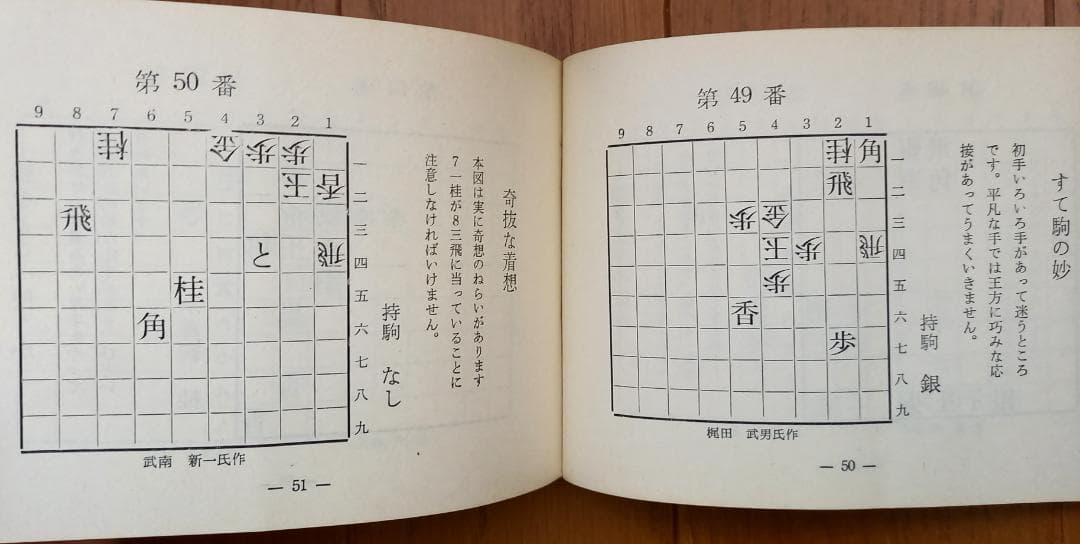 すて駒の妙
初手いろいろ手があって迷うところ
です。平凡な手では王方に巧みな応
接があってうまくいきません。
持駒 銀
第 49 番
9 8 7 6 5 4 3 2 1
桂 角 一
飛 二
歩 金 三
王 歩 飛 四
歩 五
香 六
歩 七
八
九
梶田 武男氏作
— 50 —
奇抜な着想
本図は実に奇想のねらいがあります
7一桂が8三飛に当っていることに
注意しなければいけません。
持駒 なし
第 50 番
9 8 7 6 5 4 3 2 1
桂 金 歩 歩 一
王 香 二
飛 三
と 飛 四
桂 五
角 六
七
八
九
武南 新一氏作
— 51 —